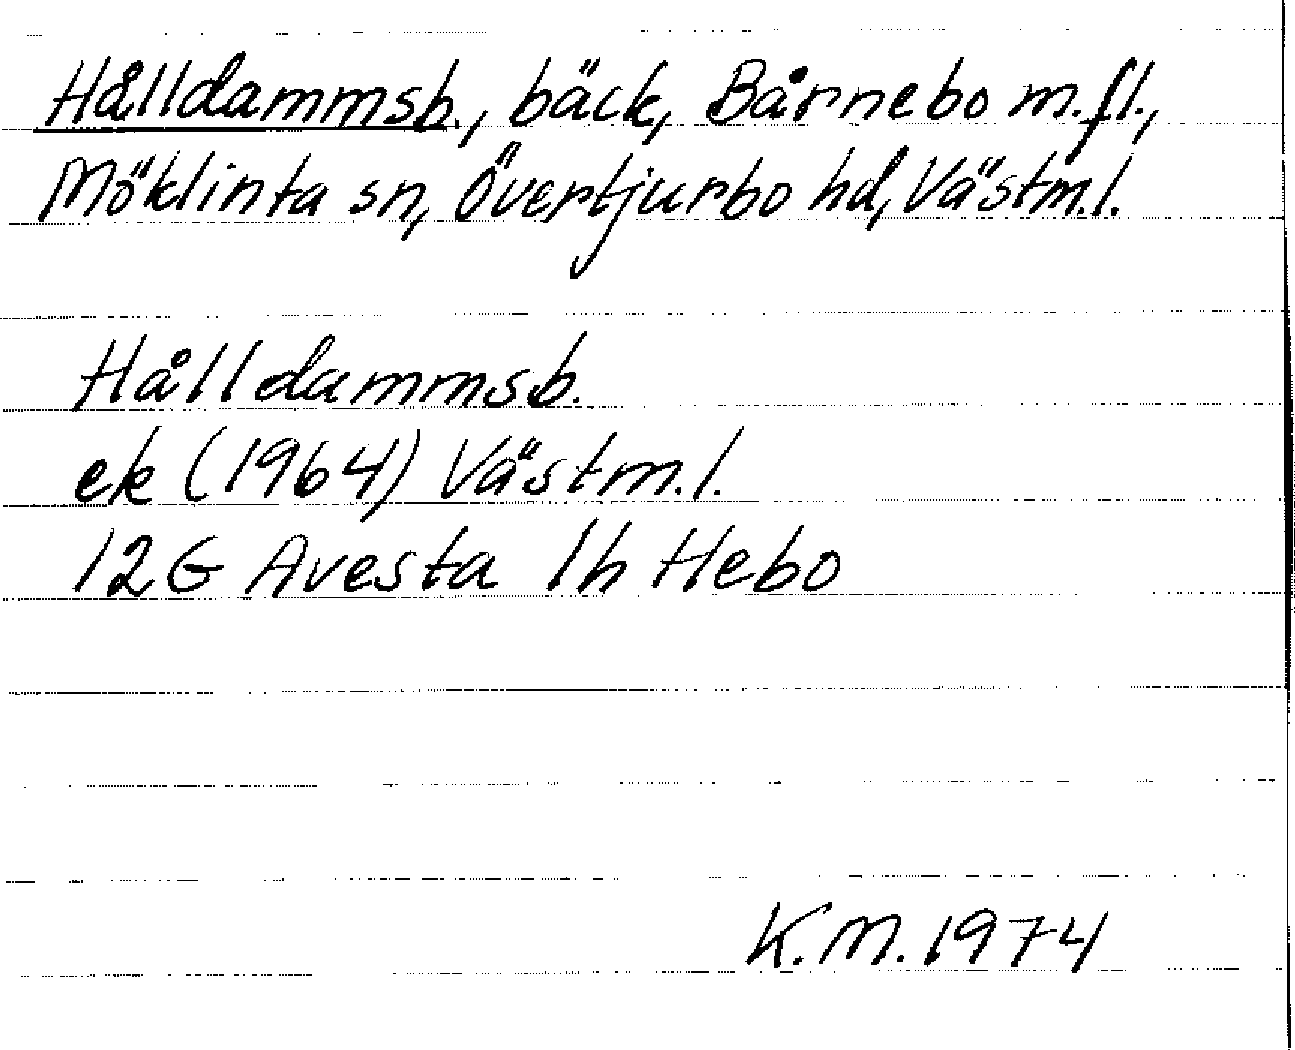 Hålldammsb., bäck, Bårnebo m.fl.,
Möklinta sn, Övertjurbo hd, Västm.l.
Hålldammsb.
ek (1964) Västm.l.
12G Avesta 1h Hebo
K.M. 1974